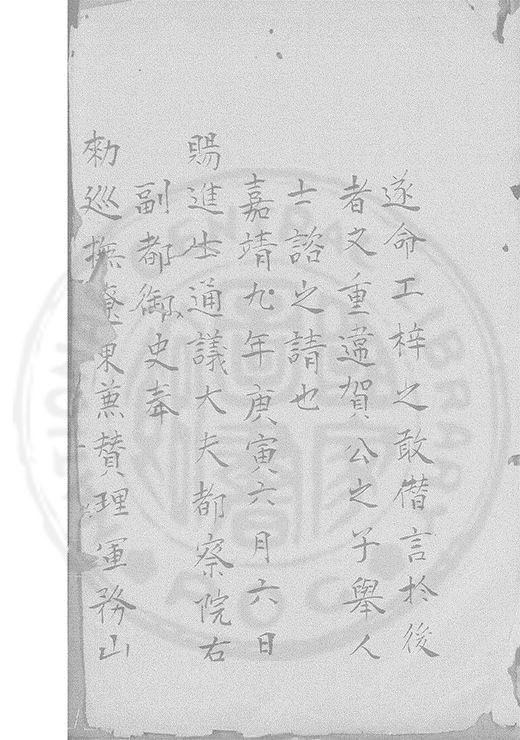 遂命工梓之敢僣言於後
者又重違賀公之子舉人
士諮之請也
嘉靖九年庚寅六月六日
賜進士通議大夫都察院右
副都御史奉
勑巡撫遼東兼贊理軍務山